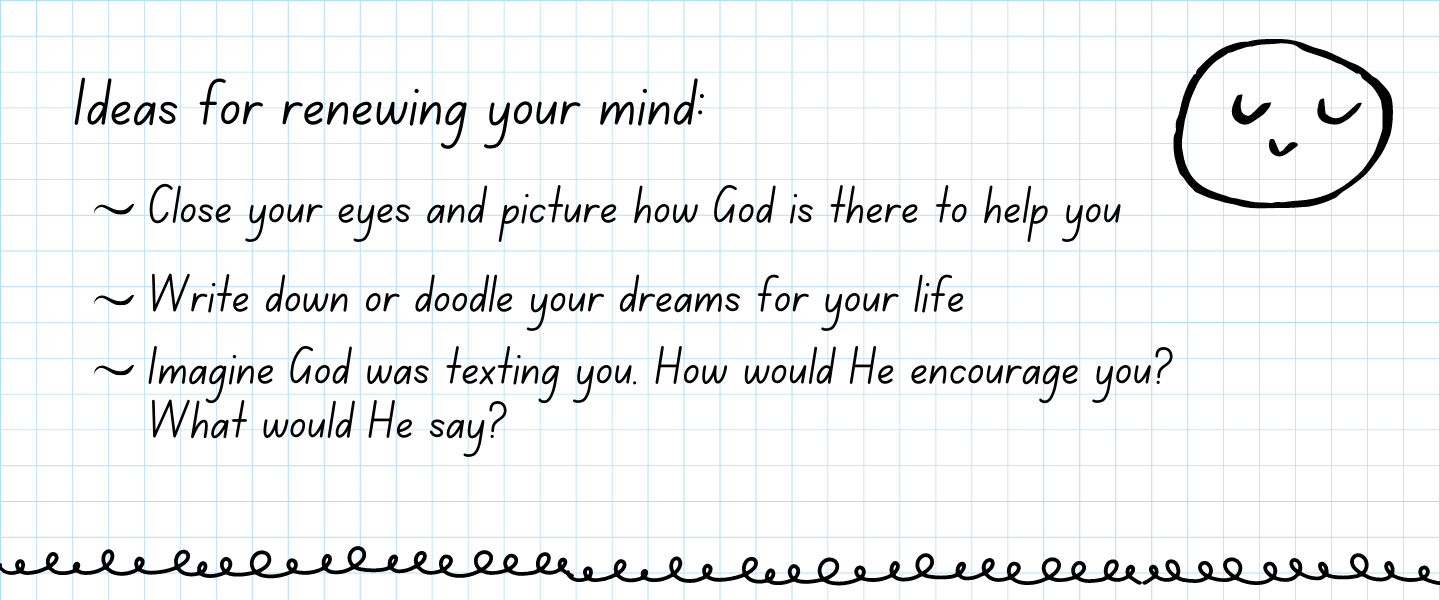 Ideas for renewing your mind:
~ Close your eyes and picture how God is there to help you
~ Write down or doodle your dreams for your life
~ Imagine God was texting you. How would He encourage you?
What would He say?